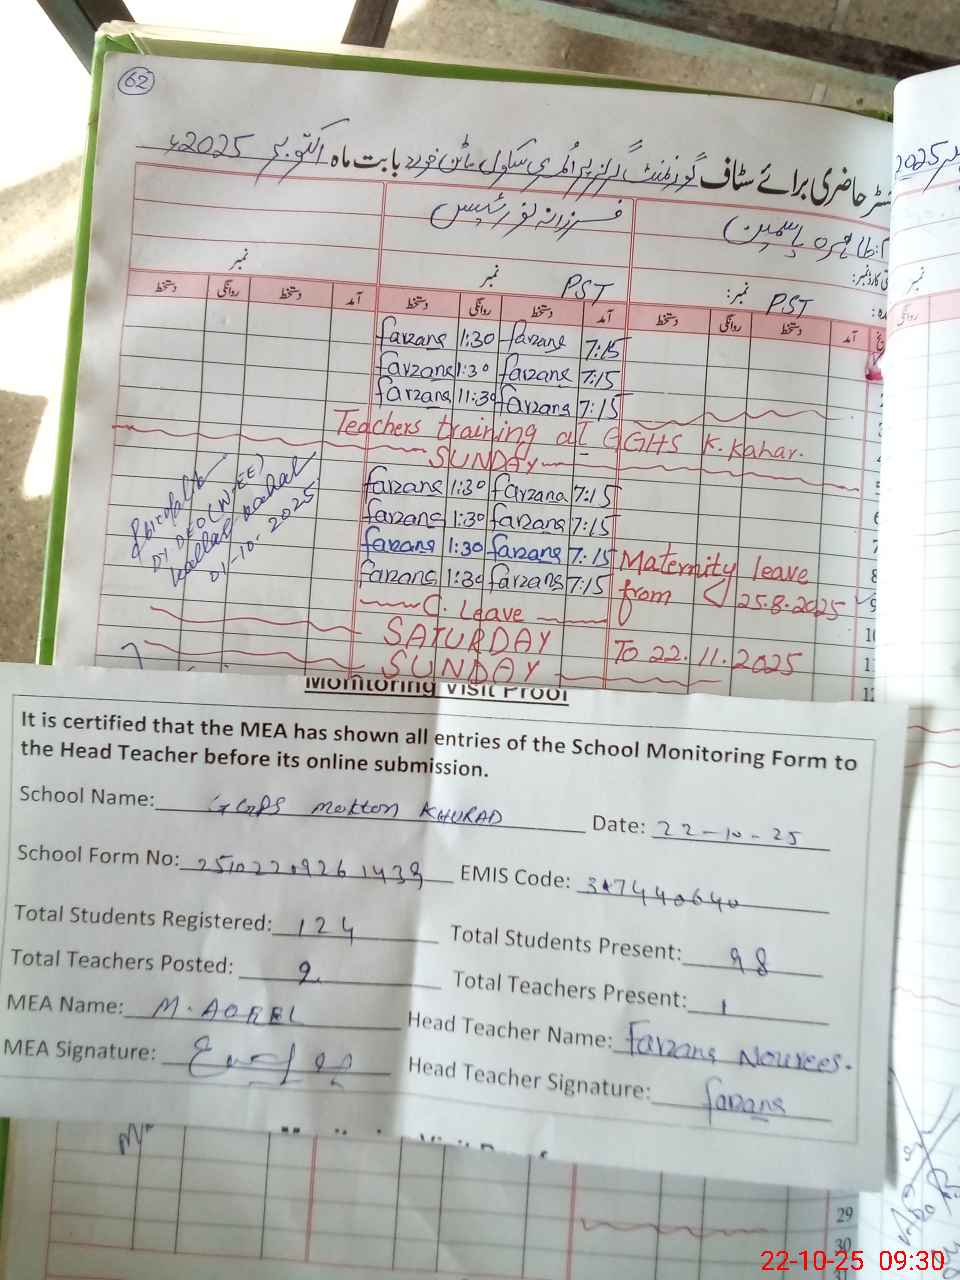 62
سٹر حاضری برائے سٹاف گورنمنٹ گرلز پرائمری سکول خورد بابت ماہ اکتوبر 2025ء
طاہرہ یاسمین
فرزانہ نورئیس
نمبر
نمبر
PST
نمبر:
PST
دستخط روانگی دستخط آمد دستخط روانگی دستخط آمد دستخط روانگی دستخط آمد
farzana 1:30 farzana 7:15
farzana 1:30 farzana 7:15
farzana 11:30 farzana 7:15
Teachers training at GGHS K.Kahar.
SUNDAY
farzana 1:30 farzana 7:15
farzana 1:30 farzana 7:15
farzana 1:30 farzana 7:15
farzana 1:30 farzana 7:15
Maternity leave
from 25.8.2025
To 22.11.2025
C. Leave
SATURDAY
SUNDAY
Dy DEO (W-EE)
Kallar Kahar
01-10-2025
Monitoring Visit Proof
It is certified that the MEA has shown all entries of the School Monitoring Form to
the Head Teacher before its online submission.
School Name: GGPS KHURAD Date: 22-10-25
School Form No: EMIS Code:
Total Students Registered: 124 Total Students Present: 98
Total Teachers Posted: 2 Total Teachers Present: 1
MEA Name: M. Head Teacher Name: Farzana Nourees.
MEA Signature: Head Teacher Signature: farzana
29
30
22-10-25 09:30